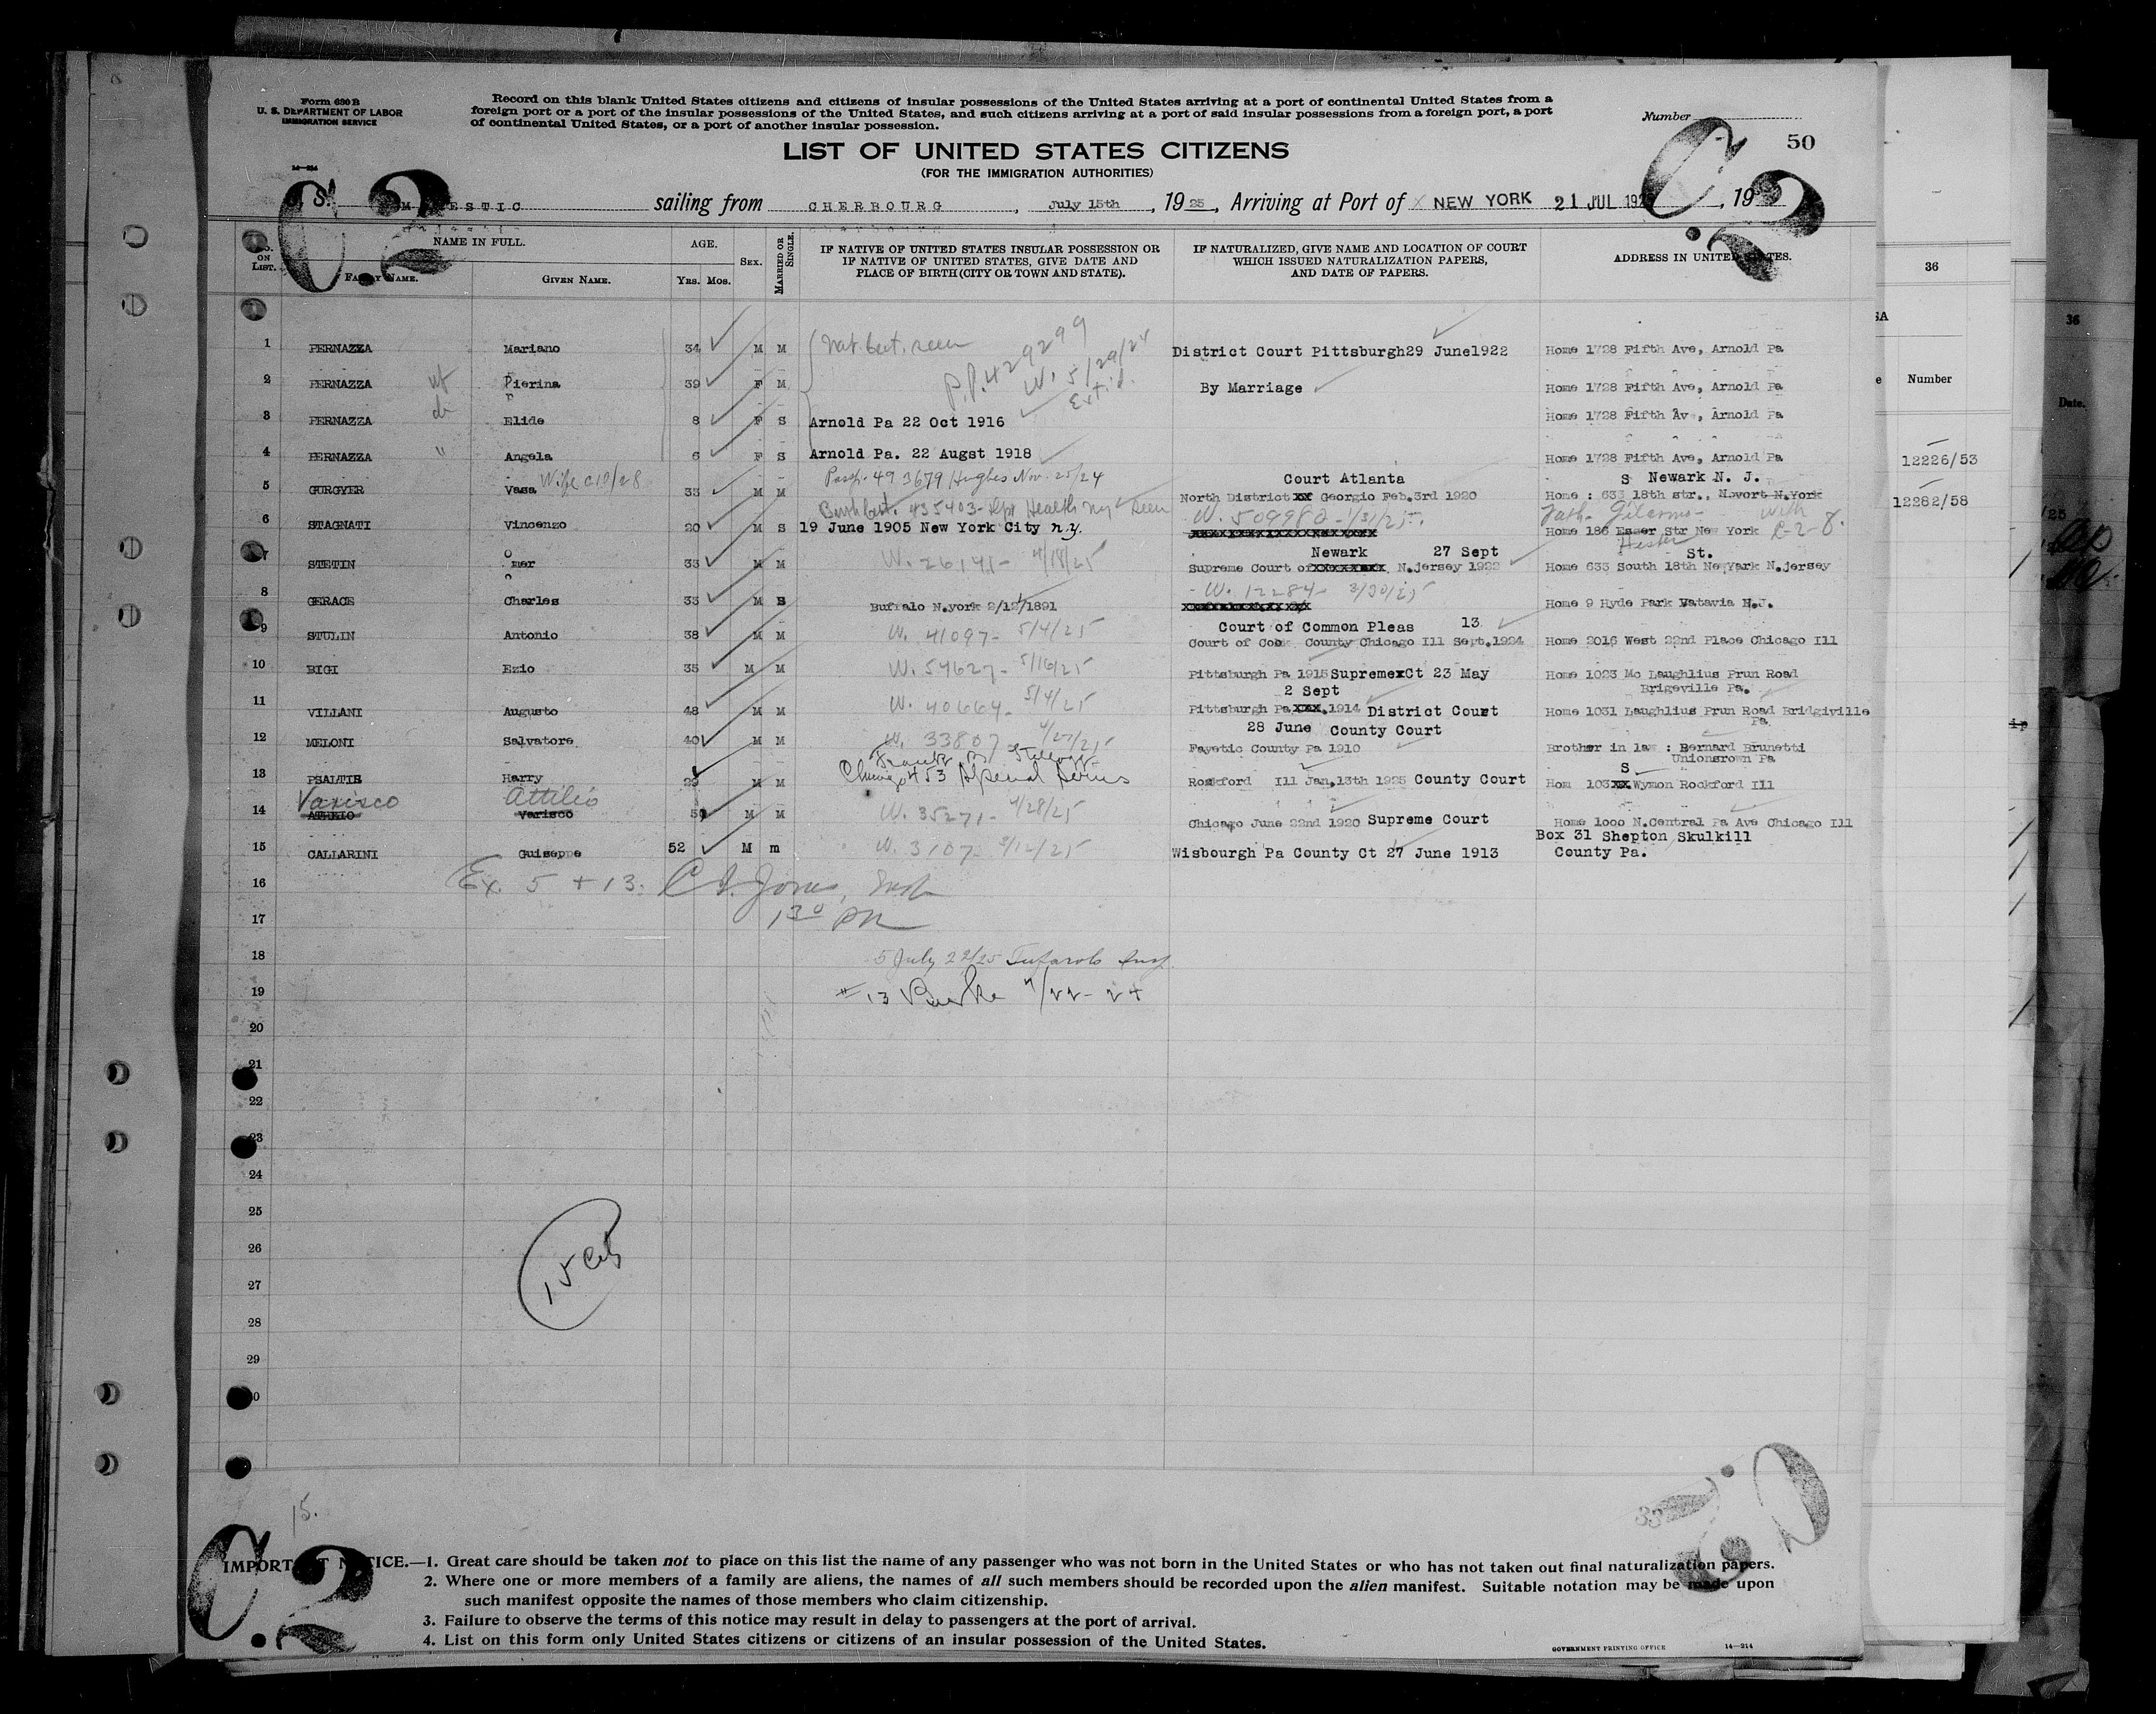 Form 630 B
U. S. DEPARTMENT OF LABOR
IMMIGRATION SERVICE
14—214
Record on this blank United States citizens and citizens of insular possessions of the United States arriving at a port of continental United States from a
foreign port or a port of the insular possessions of the United States, and such citizens arriving at a port of said insular possessions from a foreign port, a port
of continental United States, or a port of another insular possession.
Number
50
LIST OF UNITED STATES CITIZENS
(FOR THE IMMIGRATION AUTHORITIES)
S. ESTIC sailing from CHERBOURG, July 15th, 1925, Arriving at Port of NEW YORK 21 JUL 192 , 19
NAME IN FULL.
AGE.
SEX.
MARRIED OR SINGLE.
IF NATIVE OF UNITED STATES INSULAR POSSESSION OR
IF NATIVE OF UNITED STATES, GIVE DATE AND
PLACE OF BIRTH (CITY OR TOWN AND STATE).
IF NATURALIZED, GIVE NAME AND LOCATION OF COURT
WHICH ISSUED NATURALIZATION PAPERS,
AND DATE OF PAPERS.
ADDRESS IN UNITED STATES.
ON LIST.
FAMILY NAME.
GIVEN NAME.
YRS. MOS.
36
36
Number
Date.
1 PERNAZZA Mariano 34 M M Nat. Cert. seen District Court Pittsburgh29 June1922 Home 1728 Fifth Ave, Arnold Pa
P.P. 429299
W. 5/29/24
Ext'd.
2 PERNAZZA wf Pierina 39 F M By Marriage Home 1728 Fifth Ave, Arnold Pa
3 PERNAZZA Elide 8 F S Arnold Pa 22 Oct 1916 Home 1728 Fifth Ave, Arnold Pa
4 PERNAZZA " Angela 6 F S Arnold Pa. 22 Augst 1918 Home 1728 Fifth Ave, Arnold Pa
12226/53
Passp. 493679 Hughes Nov. 25/24 Court Atlanta S Newark N. J.
5 GURGYER Vasa 33 M M North District xx Georgio Feb.3rd 1920 Home : 633 18th str., Nevort N.York
12282/58
Birth Cert. 435403- Dpt Health NY Seen W. 509980-1/31/25. Fath-
6 STAGNATI Vincenzo 20 M S 19 June 1905 New York City n.y. Home 186 Esser Str New York
Hester
Newark 27 Sept St.
7 STETIN Omer 33 M M W. 26141- 4/18/25 Supreme Court of N.jersey 1922 Home 633 South 18th NewYark N.jersey
W. 12284- 3/30/25
8 GERACE Charles 33 M S Buffalo N.york 2/12/1891 Home 9 Hyde Park Batavia N.J.
Court of Common Pleas 13
9 STULIN Antonio 38 M M W. 41097- 5/4/25 Court of Cook County Chicago Ill Sept.1924 Home 2016 West 22nd Place Chicago Ill
10 BIGI Ezio 35 M M W. 54627- 5/16/25 Pittsburgh Pa 1915SupremexCt 23 May Home 1023 Mc Laughlius Prun Road
2 Sept Brigeville Pa.
11 VILLANI Augusto 48 M M W. 40664- 5/4/25 Pittsburgh Pa xxx.1914 District Court Home 1031 Laughlius Prun Road Bridgiville
Pa
28 June County Court
12 MELONI Salvatore 40 M M W. 33807 4/27/25 Fayetic County Pa 1910 Brother in law : Bernard Brunetti
Unionsrown Pa
13 PSALTIS Harry 29 M M Rockford Ill Jan,13th 1925 County Court Hom 103xx Wymon Rockford Ill
S
Varisco Attilio
14 ATHLIO Varisco M M W. 35271- 4/28/25 Chicago June 22nd 1920 Supreme Court Home 1000 N.Central Pa Ave Chicago Ill
15 CALLARINI Guiseppe 52 M m W. 3107- Wisbourgh Pa County Ct 27 June 1913 Box 31 Shepton Skulkill
County Pa.
16 Ex. 5 + 13: Jones,
17 130 PM
18 5 July 22/25
19 # 13 Burke 7/22-24
20
21
22
23
24
25
26
27
28
29
30
15 Cits
15.
IMPORTANT NOTICE.—1. Great care should be taken not to place on this list the name of any passenger who was not born in the United States or who has not taken out final naturalization papers.
2. Where one or more members of a family are aliens, the names of all such members should be recorded upon the alien manifest. Suitable notation may be made upon
such manifest opposite the names of those members who claim citizenship.
3. Failure to observe the terms of this notice may result in delay to passengers at the port of arrival.
4. List on this form only United States citizens or citizens of an insular possession of the United States.
GOVERNMENT PRINTING OFFICE 14—214